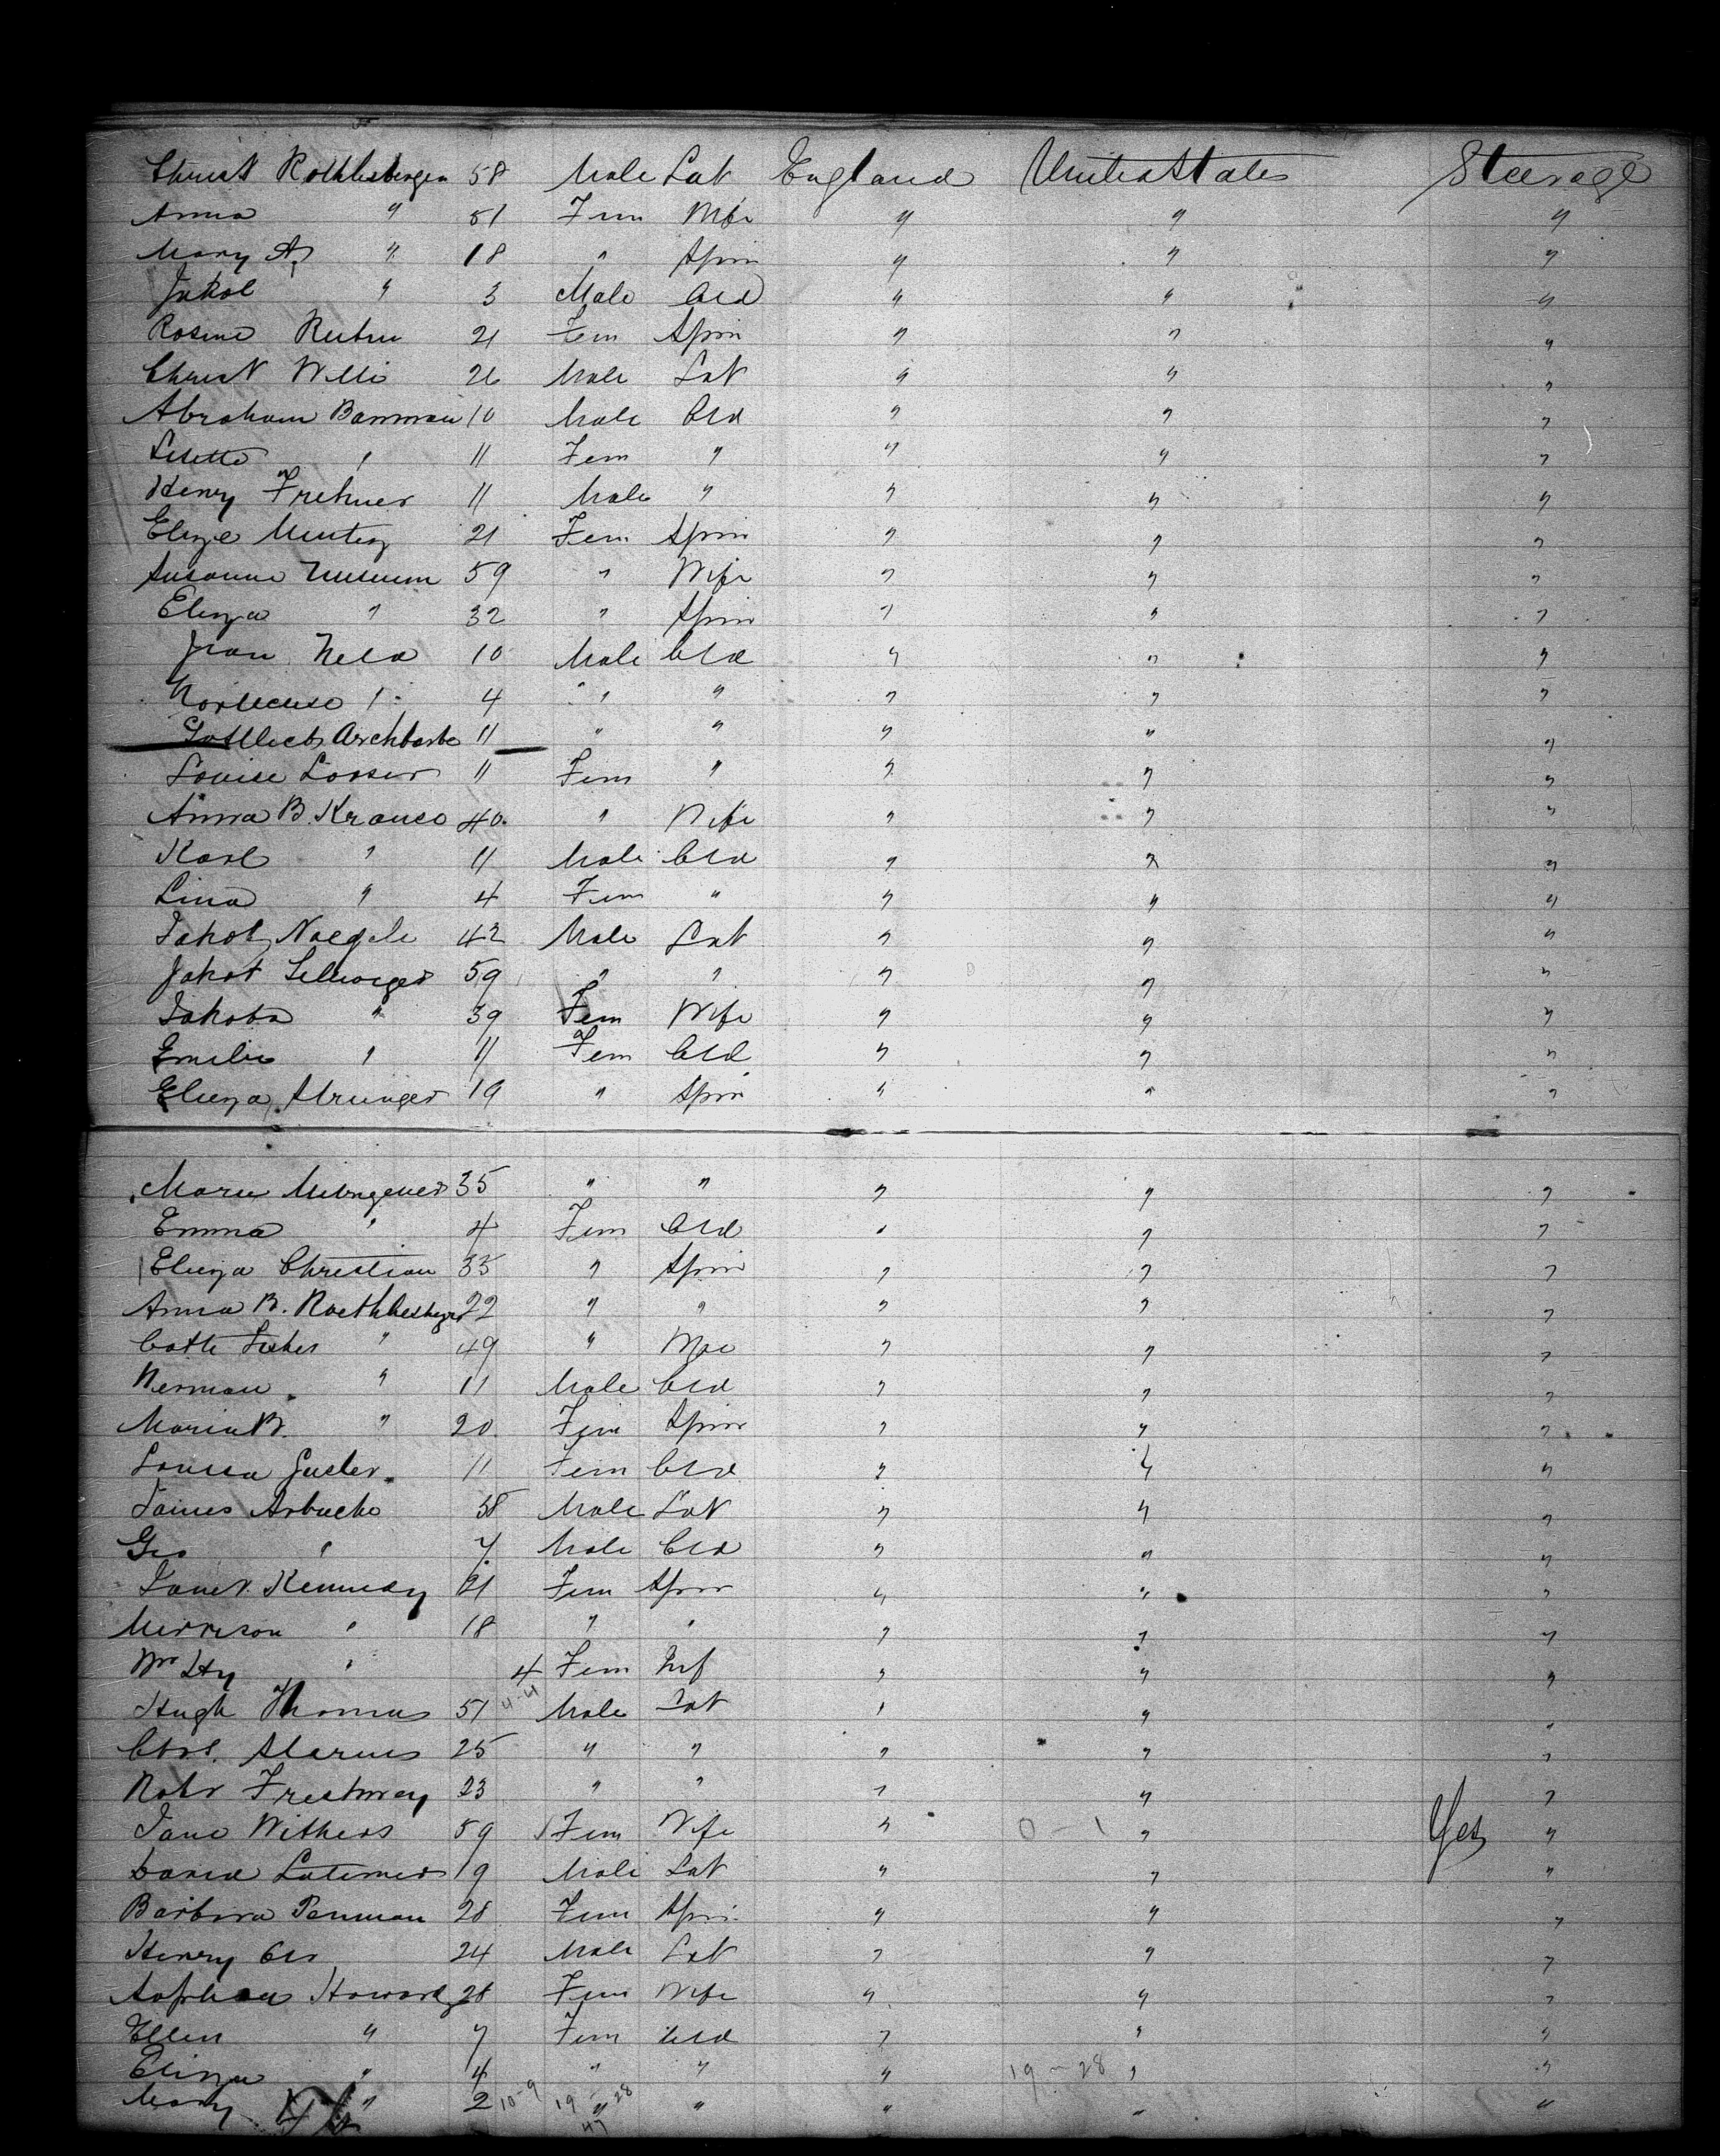 Christ Rothlisbergen 58 Male Lab England United States Steerage
Anna " 51 Fem Wife " " "
Mary A " 18 " Spin " " "
Jakob " 3 Male Cld " " "
Rosine 21 Fem Spin " " "
Christ Willi 26 Male Lab " " "
Abraham Bamman 10 Male Cld " " "
Lisette " 11 Fem " " " "
Henry Frehner 11 Male " " " "
Elize 21 Fem Spin " " "
Susanne 59 " Wife " " "
Eliza " 32 " Spin " " "
Jean Held 10 Male Cld " " "
" 4 " " " " "
Gottlieb 11 " " " " "
Louise Losser 11 Fem " " " "
Anna B. Krause 40 " Wife " " "
Karl " 11 Male Cld " " "
Lina " 4 Fem " " " "
Jakob Naegele 42 Male Lab " " "
Jakob 59 " " " " "
Jakoba " 39 Fem Wife " " "
Emilie " 11 Fem Cld " " "
Eliza 19 " Spin " " "
Marie 35 " " " " "
Emma " 4 Fem Cld " " "
Eliza Christian 33 " Spin " " "
Anna B. Roethlisberger 22 " " " " "
Cath " 49 " " " "
Herman " 11 Male Cld " " "
Maria B. " 20 Fem Spin " " "
Louisa 11 Fem Cld " " "
James Arbucko 38 Male Lab " " "
Geo " 7 Male Cld " " "
Janet Kennedy 21 Fem Spin " " "
Morrison " 18 " " " " "
Wm Hy " 4 Fem Inf " " "
Hugh Thomas 51 4-4 Male Lab " " "
Chas. 25 " " " " "
Robt Frestway 23 " " " " "
Jane Withers 59 Fem Wife " 0-1 " Yes "
David Latimer 19 Male Lab " " "
Barbara Penman 28 Fem Spin " " "
Henry 24 Male Lab " " "
Sophia Howard 28 Fem Wife " " "
Ellen " 7 Fem Cld " " "
Eliza " 4 " " " 19-28 " "
Mary " 2 10-9 19-28 " " " " "
47